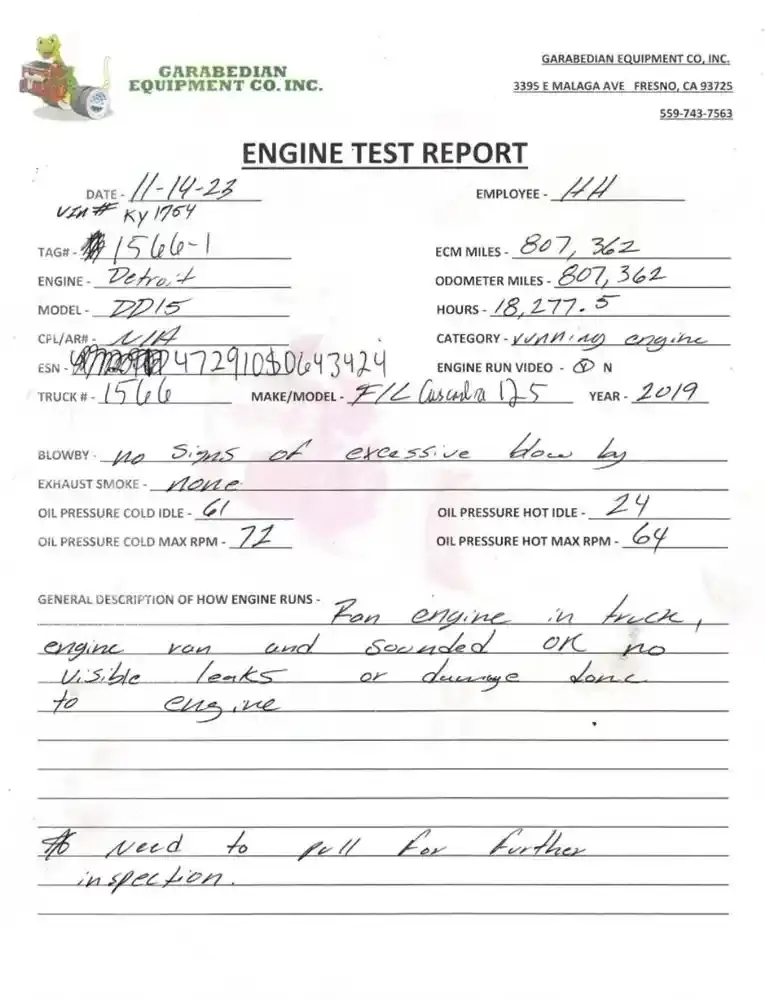 GARABEDIAN
EQUIPMENT CO. INC.
GARABEDIAN EQUIPMENT CO, INC.
3395 E MALAGA AVE FRESNO, CA 93725
559-743-7563
ENGINE TEST REPORT
DATE - 11-14-23 EMPLOYEE - HH
VIN # KY1764
TAG# - 1566-1 ECM MILES - 807,362
ENGINE - Detroit ODOMETER MILES - 807,362
MODEL - DD15 HOURS - 18,277.5
CPL/AR# - N/A CATEGORY - running engine
ESN - 472910S0643424 ENGINE RUN VIDEO - Y N
TRUCK # - 1566 MAKE/MODEL - F/L Cascadia 125 YEAR - 2019
BLOWBY - no signs of excessive blow by
EXHAUST SMOKE - none
OIL PRESSURE COLD IDLE - 61 OIL PRESSURE HOT IDLE - 24
OIL PRESSURE COLD MAX RPM - 72 OIL PRESSURE HOT MAX RPM - 64
GENERAL DESCRIPTION OF HOW ENGINE RUNS - Ran engine in truck,
engine ran and sounded OK no
visible leaks or damage done
to engine
Need to pull for further
inspection.